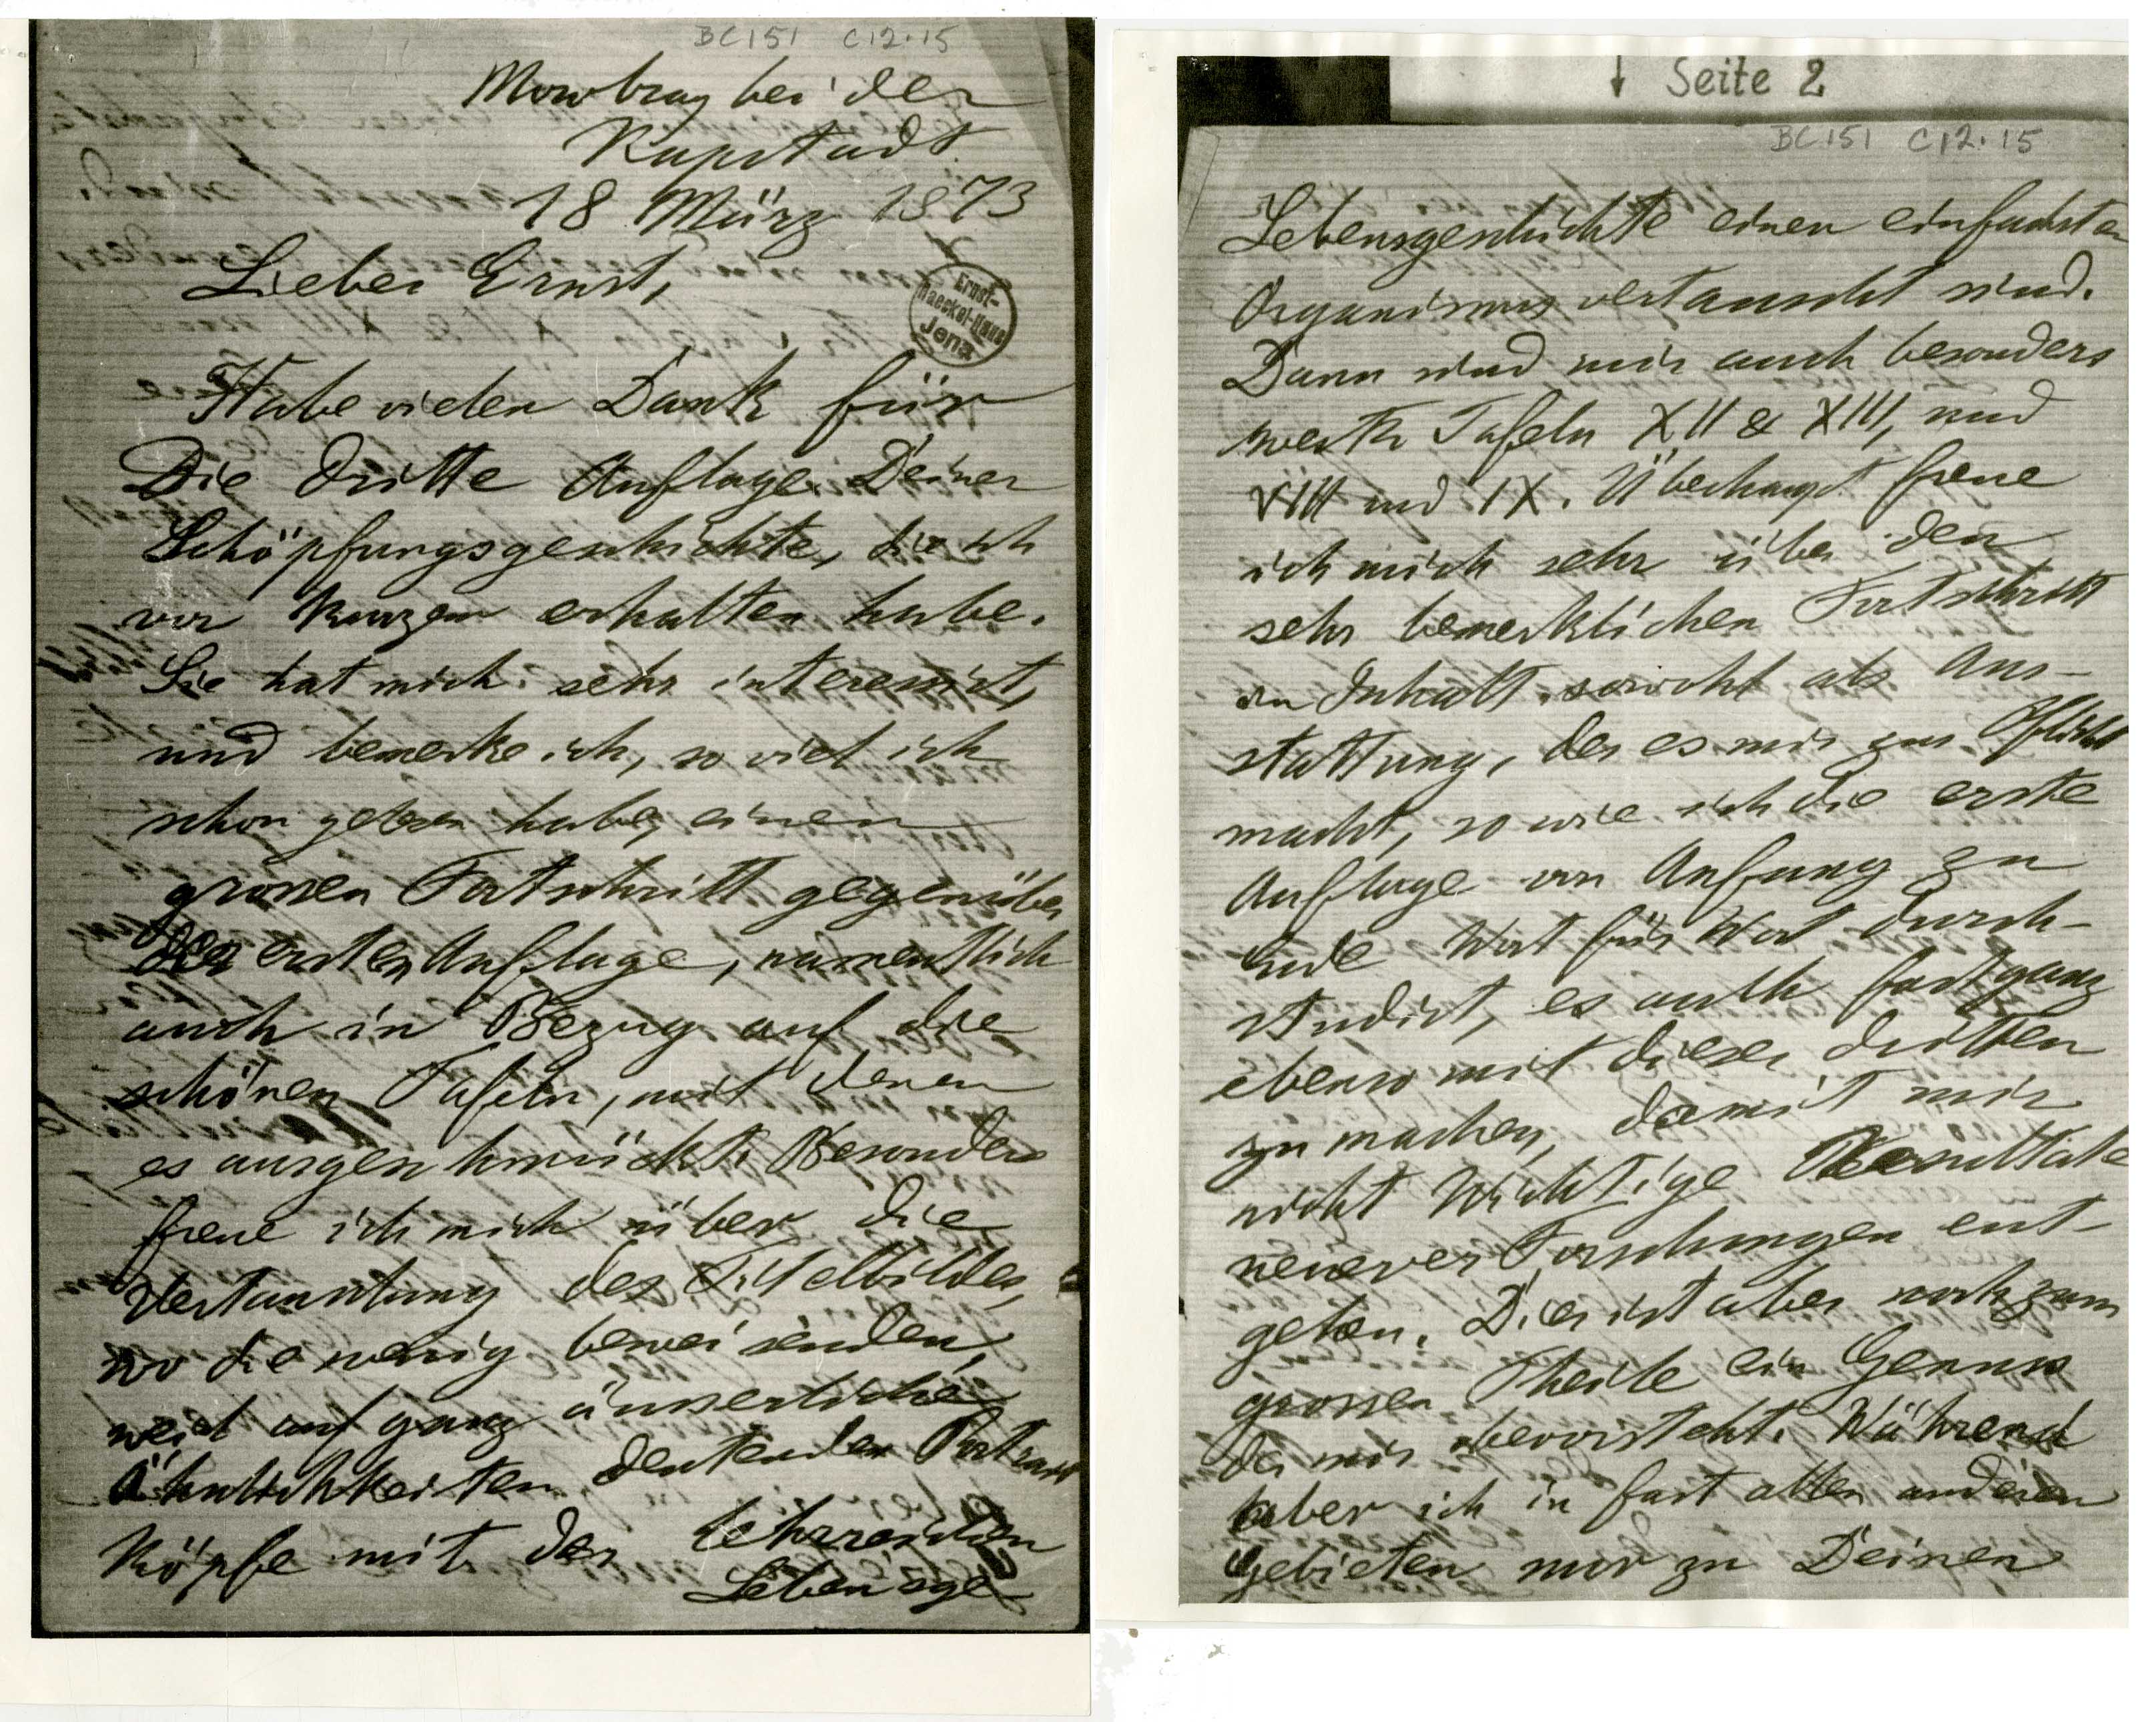 BC151 C12.15
Mowbray bei der
Kapstadt.
18 März 1873
Lieber Ernst,
Ernst-
Haeckel-Haus
Jena
Habe vielen Dank für
Die dritte Auflage Deiner
Schöpfungsgeschichte, die ich
vor Kurzem erhalten habe.
Sie hat mich sehr interessirt,
und bemerke ich, so viel ich
schon gelesen habe, einen
grossen Fortschritt gegenüber
der ersten Auflage, namentlich
auch in Bezug auf die
schönen Tafeln, mit denen
es ausgeschmückt. Besonders
freue ich mich über die
Vertauschung des Titelbildes,
wo die wenig beweisenden,
weil auf ganz äusserliche
Ähnlichkeiten deutenden Portrait
Köpfe mit der lehrreichen
Lebensge-
↓ Seite 2
BC151 C12.15
Lebensgeschichte einen einfachsten
Organismus vertauscht sind.
Dann sind mir auch besonders
werth Tafeln XII & XIII, und
VIII und IX. Überhaupt freue
ich mich sehr über den
sehr bemerklichen Fortschritt
in Inhalt sowohl als Aus-
stattung, der es mir zur Pflicht
macht, so wie ich die erste
Auflage von Anfang zu
Ende Wort für Wort durch-
studirt, es auch fast ganz
ebenso mit dieser dritten
zu machen, damit mir
nicht wichtige Resultate
neuerer Forschungen ent-
gehen. Dies ist aber auch zum
grossen Theile ein Genuss
der mir bevorsteht. Während
aber ich in fast allen anderen
Gebieten nur zu Deinen